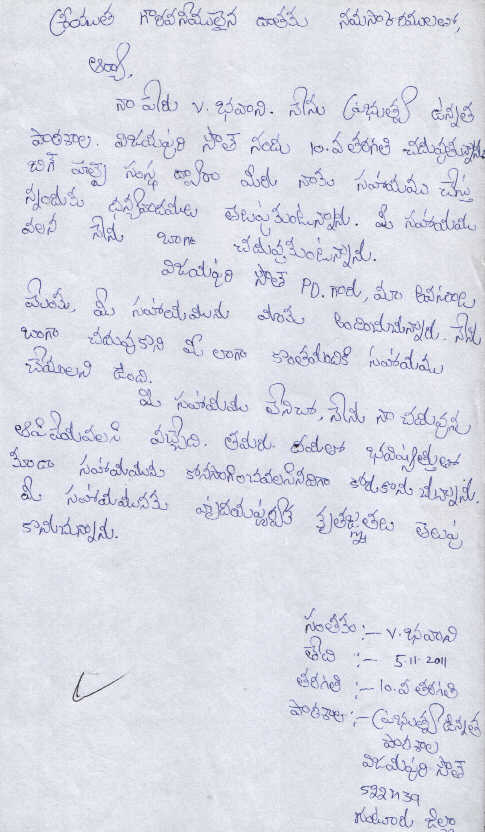 శ్రీయుత గౌరవనీయులైన దాతకు నమస్కారములతో,
ఆర్యా,
నా పేరు V. భవాని. నేను ప్రభుత్వ ఉన్నత
పాఠశాల. విజయపురి సౌత్ నందు 10.వ తరగతి చదువుతున్నాను.
బిగ్ హెల్ప్ సంస్థ ద్వారా మీరు నాకు సహాయము చేస్తు
న్నందుకు ధన్యవాదములు తెలుపుకుంటున్నాను. మీ సహాయము
వలన నేను బాగా చదువుకుంటున్నాను.
విజయపురి సౌత్ P.D. గారు, మా అవసరాల
మేరకు, మీ సహాయమును మాకు అందించుచున్నారు. నేను
బాగా చదువుకొని మీ లాగా కొంతమందికి సహాయము
చేయాలని ఉంది.
మీ సహాయము లేనిచో, నేను నా చదువును
ఆపివేయవలసి వచ్చేది. తమరు దయతో భవిష్యత్తులో
కూడా సహాయమును కొనసాగించవలసినదిగా కోరుకొను చున్నాను.
మీ సహాయమునకు హృదయపూర్వక కృతజ్ఞతలు తెలుపు
కొనుచున్నాను.
సంతకం :- V. భవాని
తేది :- 5.11.2011
తరగతి :- 10.వ తరగతి
పాఠశాల :- ప్రభుత్వ ఉన్నత
పాఠశాల
విజయపురి సౌత్
522439
గుంటూరు జిల్లా